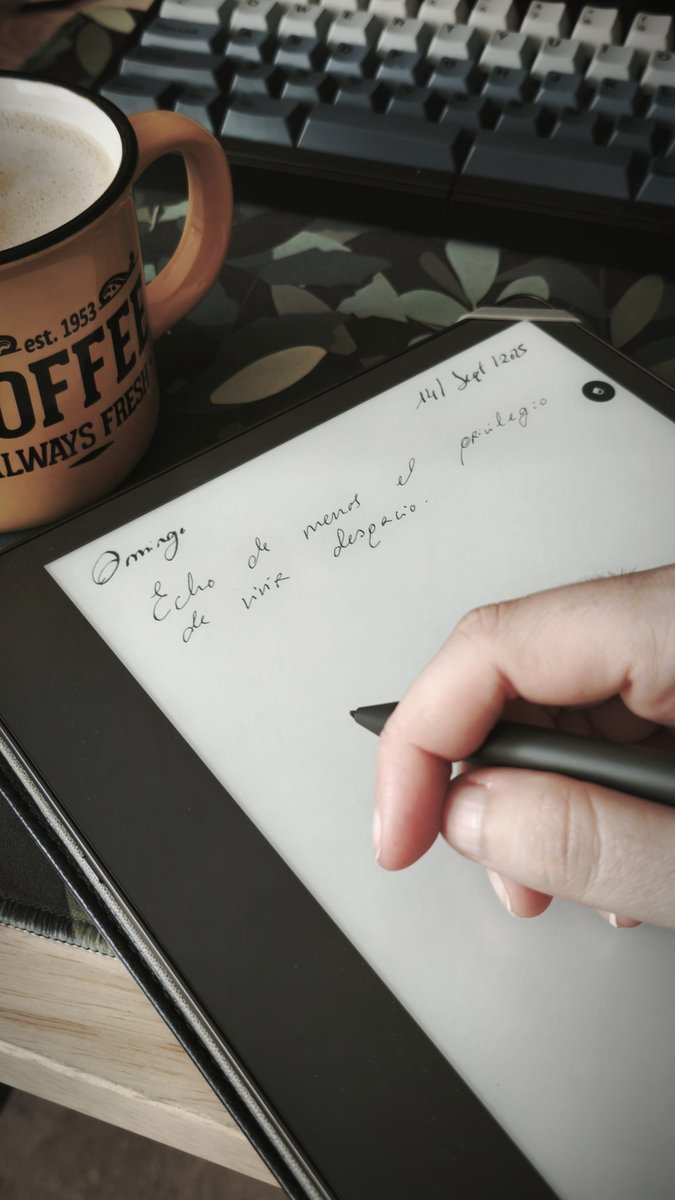 est. 1953
OFFEE
ALWAYS FRESH
14/ Sept /2025
Domingo
Echo de menos el privilegio
de vivir despacio.